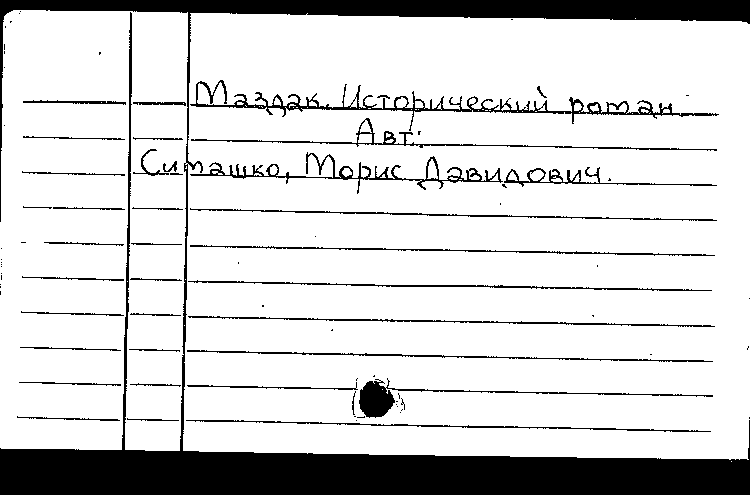 Маздак. Исторический роман.
Авт.:
Симашко, Морис Давидович.